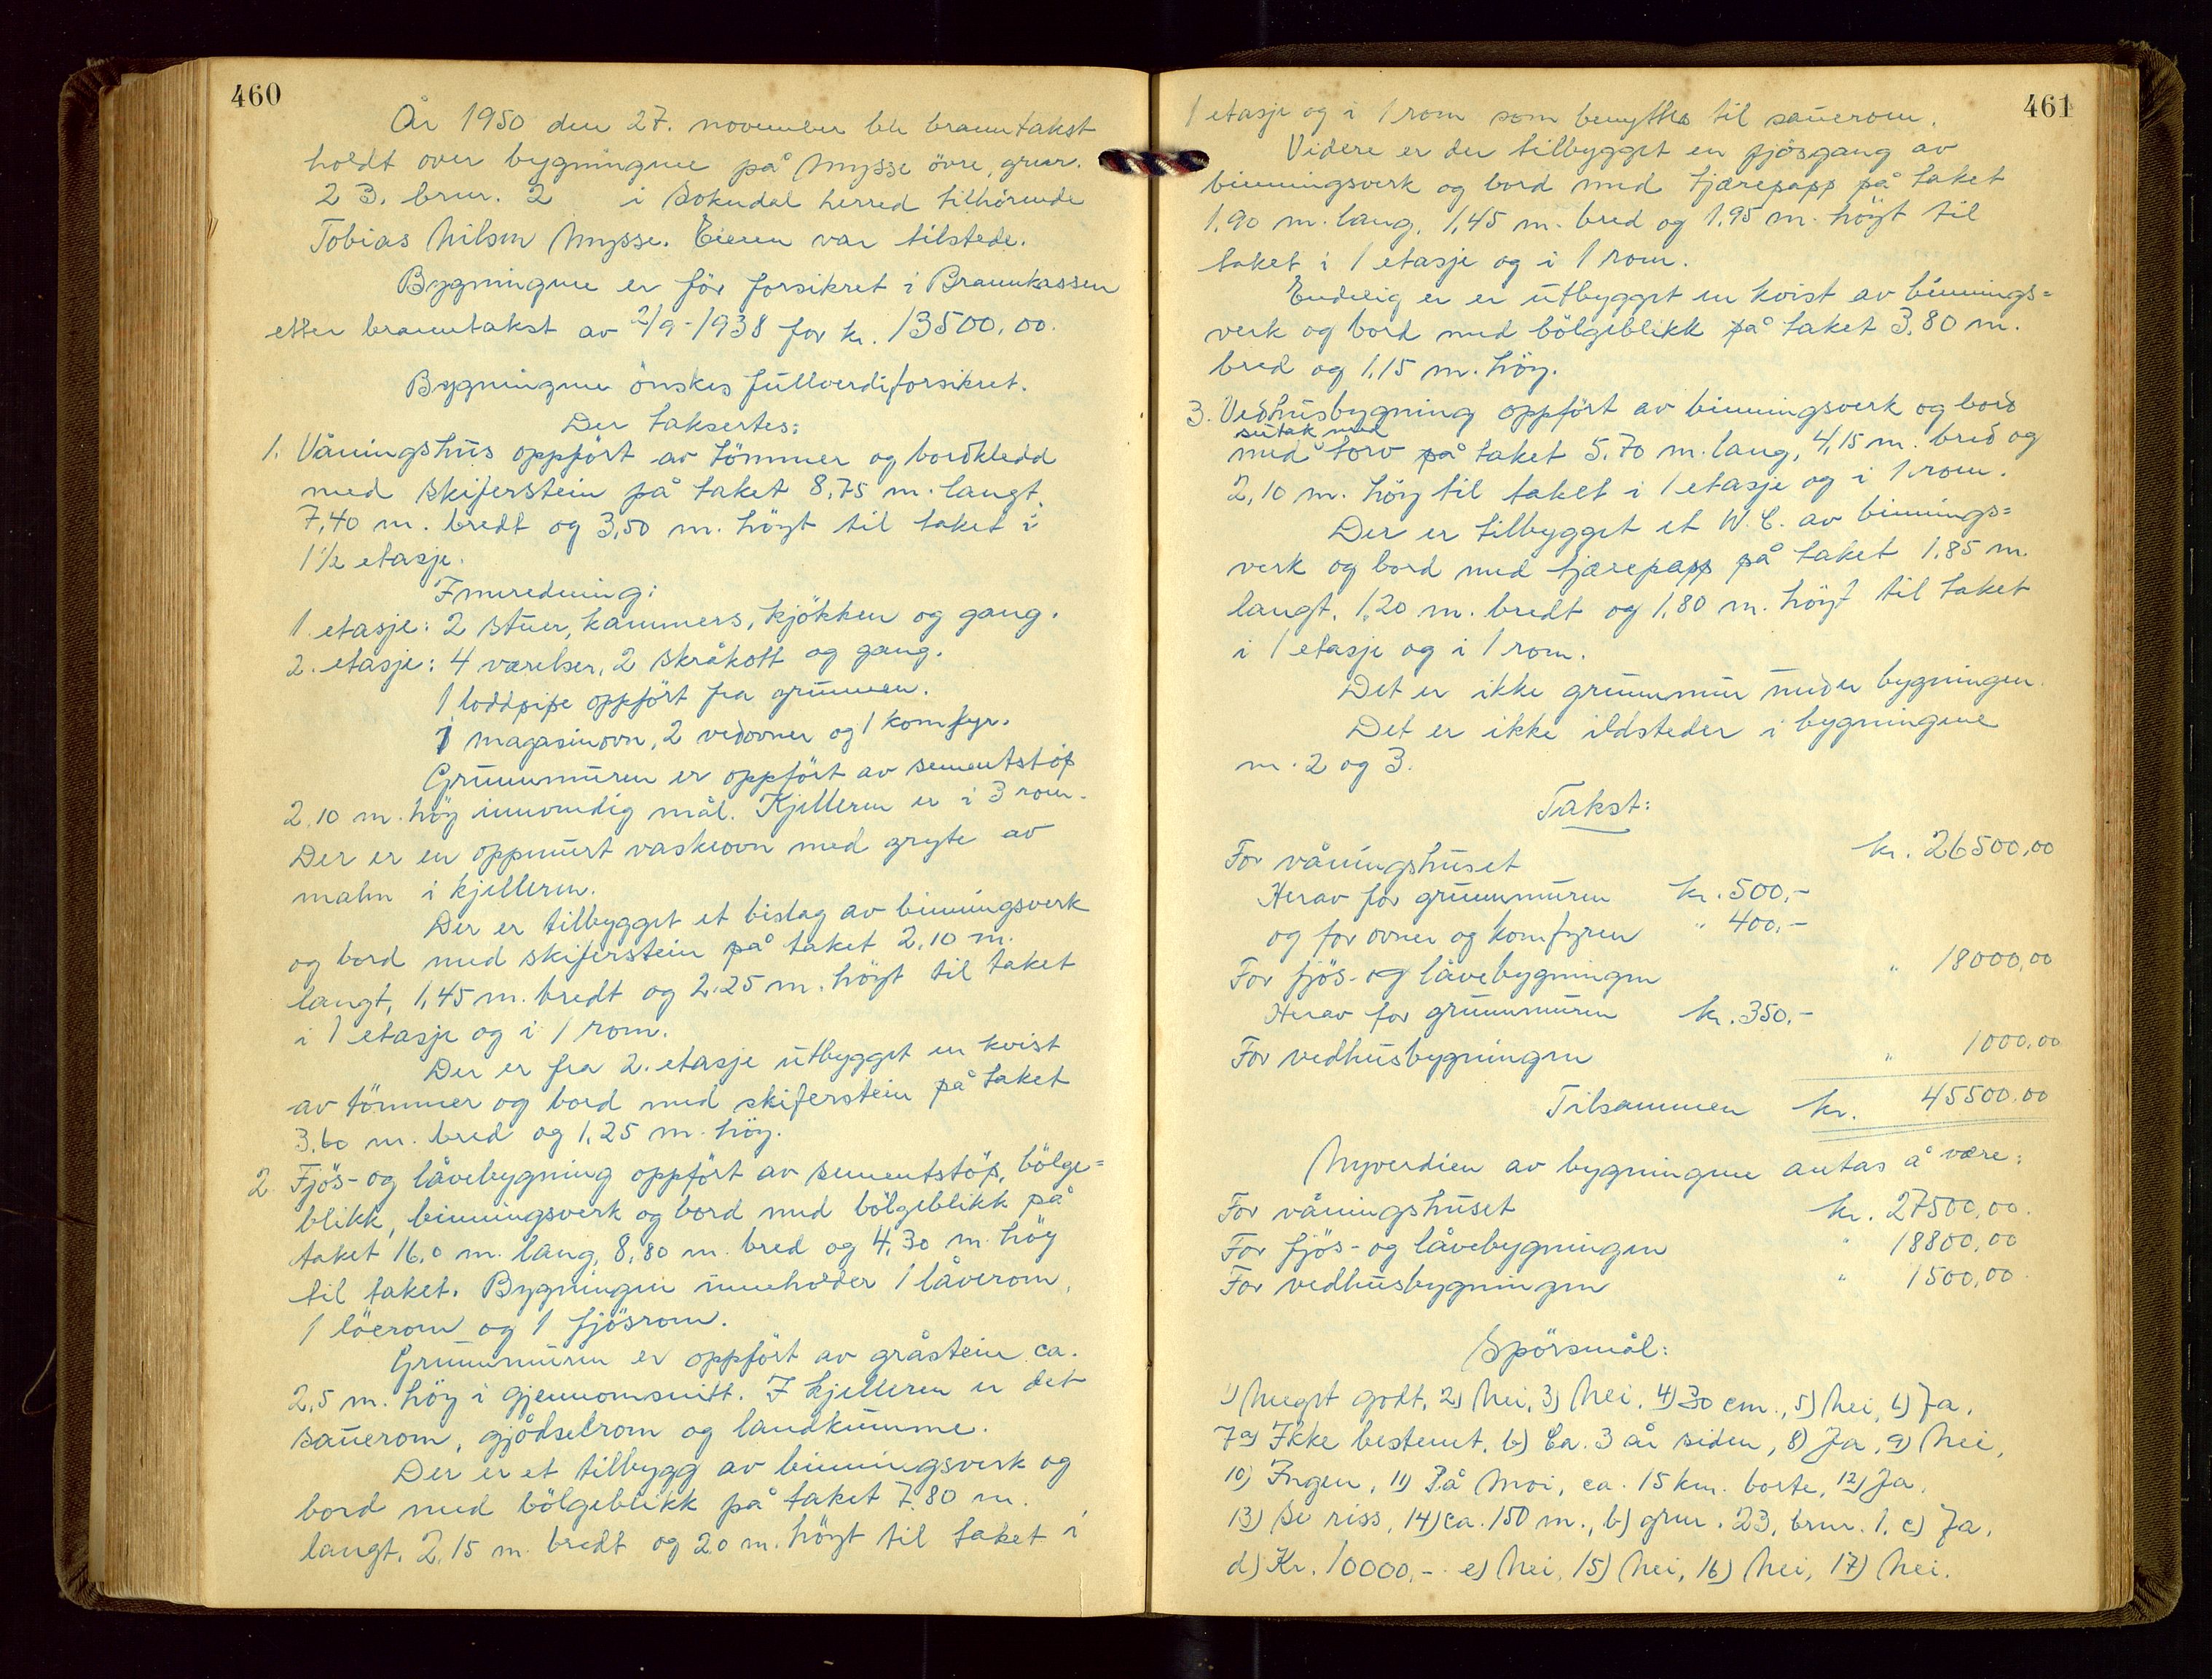 460
År 1950 den 27. november ble branntakst
holdt over bygningene på Mysse övre, gnr.
23. bnr. 2 i Sokndal herred tilhörende
Tobias Nilsen Mysse. Eieren var tilstede.
Bygningene er för forsikret i Brannkassen
etter branntakst av 2/9-1938 for kr. 13500,00.
Bygningene önskes fullverdiforsikret.
Der taksertes:
1. Våningshus oppfört av tömmer og bordkledd
med skiferstein på taket 8,75 m. langt,
7,40 m. bredt og 3,50 m. höyt til taket i
1 1/2 etasje.
Innredning:
1. etasje: 2 stuer, kammers, kjökken og gang.
2. etasje: 4 værelser, 2 skråkott og gang.
1 loddpipe oppfört fra grunnen.
1 magasinovn, 2 vedovner og 1 komfyr.
Grunnmuren er oppfört av sementstöp
2,10 m. höy innvendig mål. Kjelleren er i 3 rom.
Der er en oppmurt vaskeovn med gryte av
malm i kjelleren.
Der er tilbygget et bislag av binningsverk
og bord med skiferstein på taket 2,10 m.
langt, 1,45 m. bredt og 2,25 m. höyt til taket
i 1 etasje og i 1 rom.
Der er fra 2. etasje utbygget en kvist
av tömmer og bord med skiferstein på taket
3,60 m. bred og 1,25 m. höy.
2. Fjös- og låvebygning oppfört av sementstöp, bölge=
blikk, binningsverk og bord med bölgeblikk på
taket 16,0 m. lang, 8,80 m. bred og 4,30 m. höy
til taket. Bygningen inneholder 1 låverom,
1 löerom og 1 fjösrom.
Grunnmuren er oppfört av gråstein ca.
2,5 m. höy i gjennomsnitt. I kjelleren er det
sauerom, gjödselrom og landkumme.
Der er et tilbygg av binningsverk og
bord med bölgeblikk på taket 7,80 m.
langt, 2,15 m. bredt og 2,0 m. höyt til taket i
461
1 etasje og i 1 rom som benyttes til sauerom.
Videre er der tilbygget en fjösgang av
binningsverk og bord med tjærepapp på taket
1,90 m. lang, 1,45 m. bred og 1,95 m. höyt til
taket i 1 etasje og i 1 rom.
Endelig er er utbygget en kvist av binnings=
verk og bord med bölgeblikk på taket 3,80 m.
bred og 1,15 m. höy.
3. Vedhusbygning oppfört av binningsverk og bord
sutak med
med torv på taket 5,70 m. lang, 4,15 m. bred og
2,10 m. höy til taket i 1 etasje og i 1 rom.
Der er tilbygget et W.C. av binnings=
verk og bord med tjærepapp på taket 1,85 m.
langt, 1,20 m. bredt og 1,80 m. höyt til taket
i 1 etasje og i 1 rom.
Det er ikke grunnmur under bygningen.
Det er ikke ildsteder i bygningene
nr. 2 og 3.
Takst:
For våningshuset kr. 26500,00
Herav for grunnmuren kr. 500,-
og for ovner og komfyren " 400,-
For fjös- og låvebygningen " 18000,00
Herav for grunnmuren kr. 350,-
For vedhusbygningen " 1000,00
Tilsammen kr. 45500,00
Nyverdien av bygningene antas å være:
For våningshuset kr. 27500,00.
For fjös- og låvebygningen " 18800,00
For vedhusbygningen " 1500,00
Spörsmål:
1) Meget godt, 2) Nei, 3) Nei, 4) 30 cm., 5) Nei, 6) Ja,
7a) Ikke bestemt, b) Ca. 3 år siden, 8) Ja, 9) Nei,
10) Ingen, 11) På Moi, ca. 15 km. borte, 12) Ja,
13) Se riss, 14) ca. 150 m., b) gnr. 23, bnr. 1. c) Ja,
d) Kr. 10000,- e) Nei, 15) Nei, 16) Nei, 17) Nei.